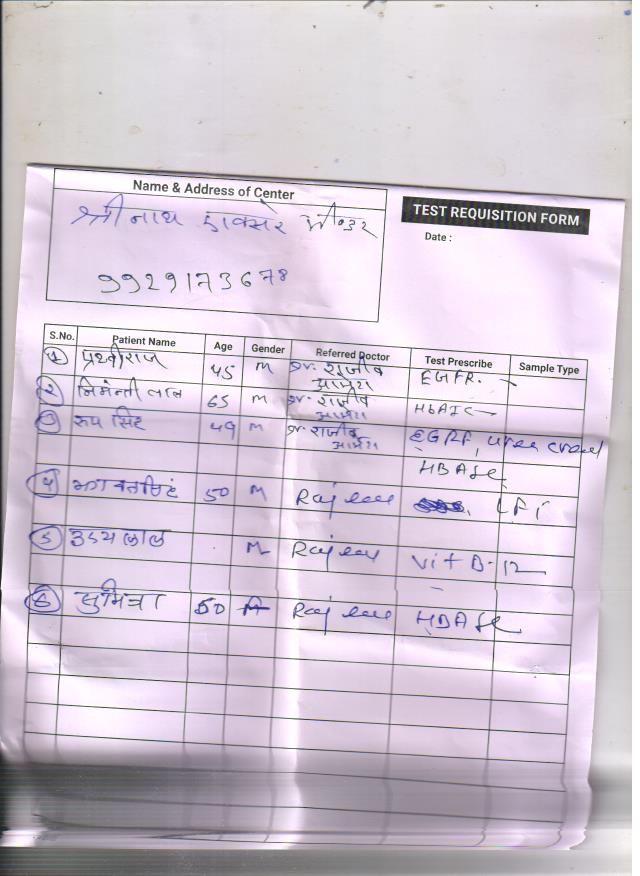 Name & Address of Center
श्रीनाथ
9929173678
TEST REQUISITION FORM
Date :
S.No. Patient Name Age Gender Referred Doctor Test Prescribe Sample Type
1 पृथ्वीराज 45 M Dr. राजीव EGFR.
2 लाल 65 M Dr. राजीव HbA1C
3 रूप सिंह 49 M Dr. राजीव EGRF, urea
HBA1c
4 50 M Rajeev LFT
5 उदयलाल M Rajeev Vit B-12
6 सुमित्रा 50 Rajeev HBA1c